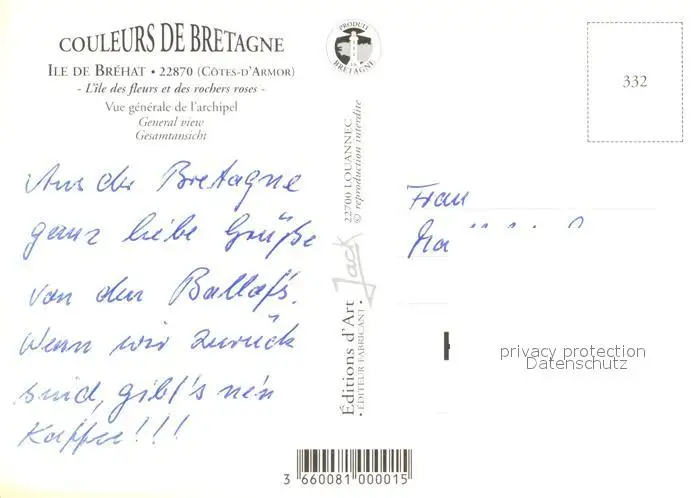 COULEURS DE BRETAGNE
ILE DE BRÉHAT • 22870 (CÔTES-D'ARMOR)
- L'île des fleurs et des rochers roses -
Vue générale de l'archipel
General view
Gesamtansicht
PRODUIT EN BRETAGNE
332
Aus der Bretagne
ganz liebe Grüße
von den Ballaf's.
Wenn wir zurück
sind, gibt's ne'n
Kaffee!!!
Editions d'Art Jack
• ÉDITEUR FABRICANT •
22700 LOUANNEC
© reproduction interdite
Frau
privacy protection
Datenschutz
3 660081 000015